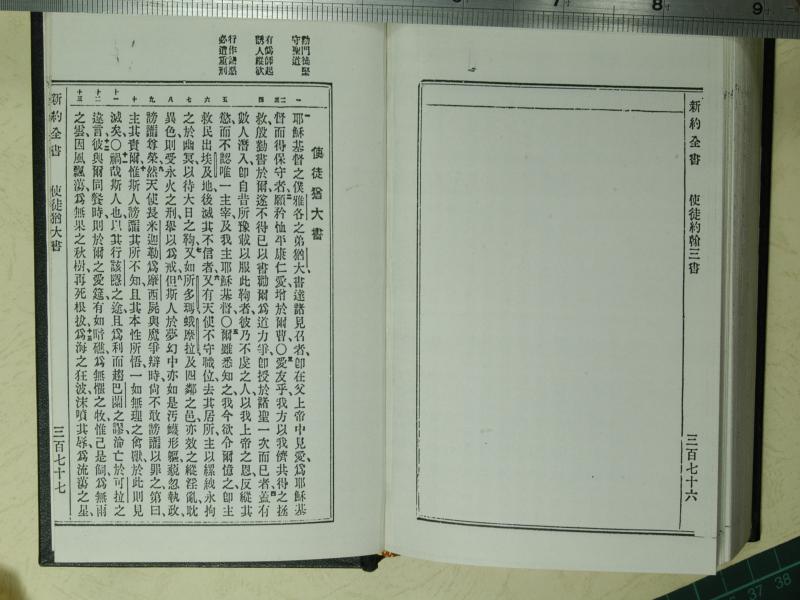 新約全書 使徒約翰三書 三百七十六
勸門徒堅
守聖道
有僞師起
誘人縱欲
行作諸惡
必遭重刑
使徒猶大書
耶穌基督之僕雅各之弟猶大書達諸見召者卽在父上帝中見愛爲耶穌基
督而得保守者願矜恤平康仁愛增於爾曹○愛友乎我方以我儕共得之拯
救殷勤書於爾遂不得已以書勸爾爲道力爭卽授於諸聖一次而已者蓋有
數人潛入卽自昔所豫載以服此鞫者彼乃不虔之人以我上帝之恩反縱其
慾而不認唯一主宰及我主耶穌基督○爾雖悉知之我今欲令爾憶之卽主
救民出埃及地後滅其不信者又有天使不守職位去其居所主以縲絏永拘
之於幽冥以待大日之鞫又如所多瑪蛾摩拉及四鄰之邑亦效之縱淫亂耽
異色則受永火之刑舉以爲戒但斯人於夢幻中亦如是污衊形軀藐忽執政
謗讟尊榮然天使長米迦勒爲摩西屍與魔爭辯時尚不敢謗讟以罪之第曰
主其責爾惟斯人謗讟其所不知且其本性所悟一如無理之禽獸於此則見
滅矣○禍哉斯人也以其行該隱之途且爲利而趨巴蘭之謬淪亡於可拉之
違言彼與爾同餐時則於爾之愛筵有如暗礁爲無懼之牧惟己是飼爲無雨
之雲因風飄蕩爲無果之秋樹再死根拔爲海之狂波沫噴其辱爲流蕩之星
新約全書 使徒猶大書 三百七十七
6
7
8
9
37
38